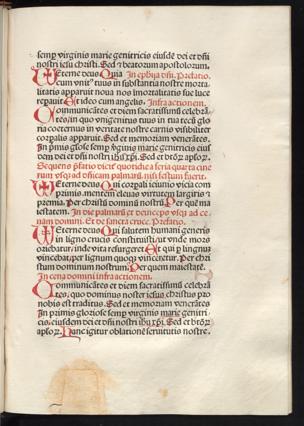 semp virginis marie genitricis eiusdē dei et dn̄i
nostri iesu christi. Sed & beatorum apostolorum.
Eterne deus. Quia In ephīa dn̄i. Prefatio.
cum unit' tuus in substantia nostre morta
litatis apparuit noua nos īmortalitatis sue luce
reparauit. Et ideo cum angelis. Infra actionem.
Communicātes et diem sacratissimū celebrā
tes, in quo unigenitus tuus in tua tecū glo
ria coeternus in veritate nostre carnis visibiliter
corporalis apparuit. Sed et memoriam venerātes.
In primis gl'ose semp virginis marie genitricis eius
dem dei et dn̄i nostri ihu xpi. Sed et btōr apl'or.
Sequens p̄fatio dicit' quotidie a feria quarta cine
rum vsq; ad officium palmarū, nisi festum fuerit.
Eterne deus. Qui corporali ieiunio vicia com
primis, mentem eleuas virtutem largiris &
premia. Per christū dominū nostrū. Per quē ma
iestatem. In die palmarū et deinceps vsq; ad ce
nam domini. Et de sancta cruce. Prefatio.
Eterne deus. Qui salutem humani generis
in ligno crucis constituisti, ut vnde mors
oriebatur, inde vita resurgeret. Et qui in ligno
vincebat, per lignum quoq; vinceretur. Per chri
stum dominum nostrum. Per quem maiestatē.
In cena domini infra actionem.
Communicātes et diem sacratissimū celebrā
tes, quo dominus noster iesus christus pro
nobis est traditus. Sed et memoriam venerātes
In primis gloriose semp virginis marie genitri
cis, eiusdem dei et dn̄i nostri ihu xpi. Sed et btōr
apl'or. Hanc igitur oblationē seruitutis nostre.